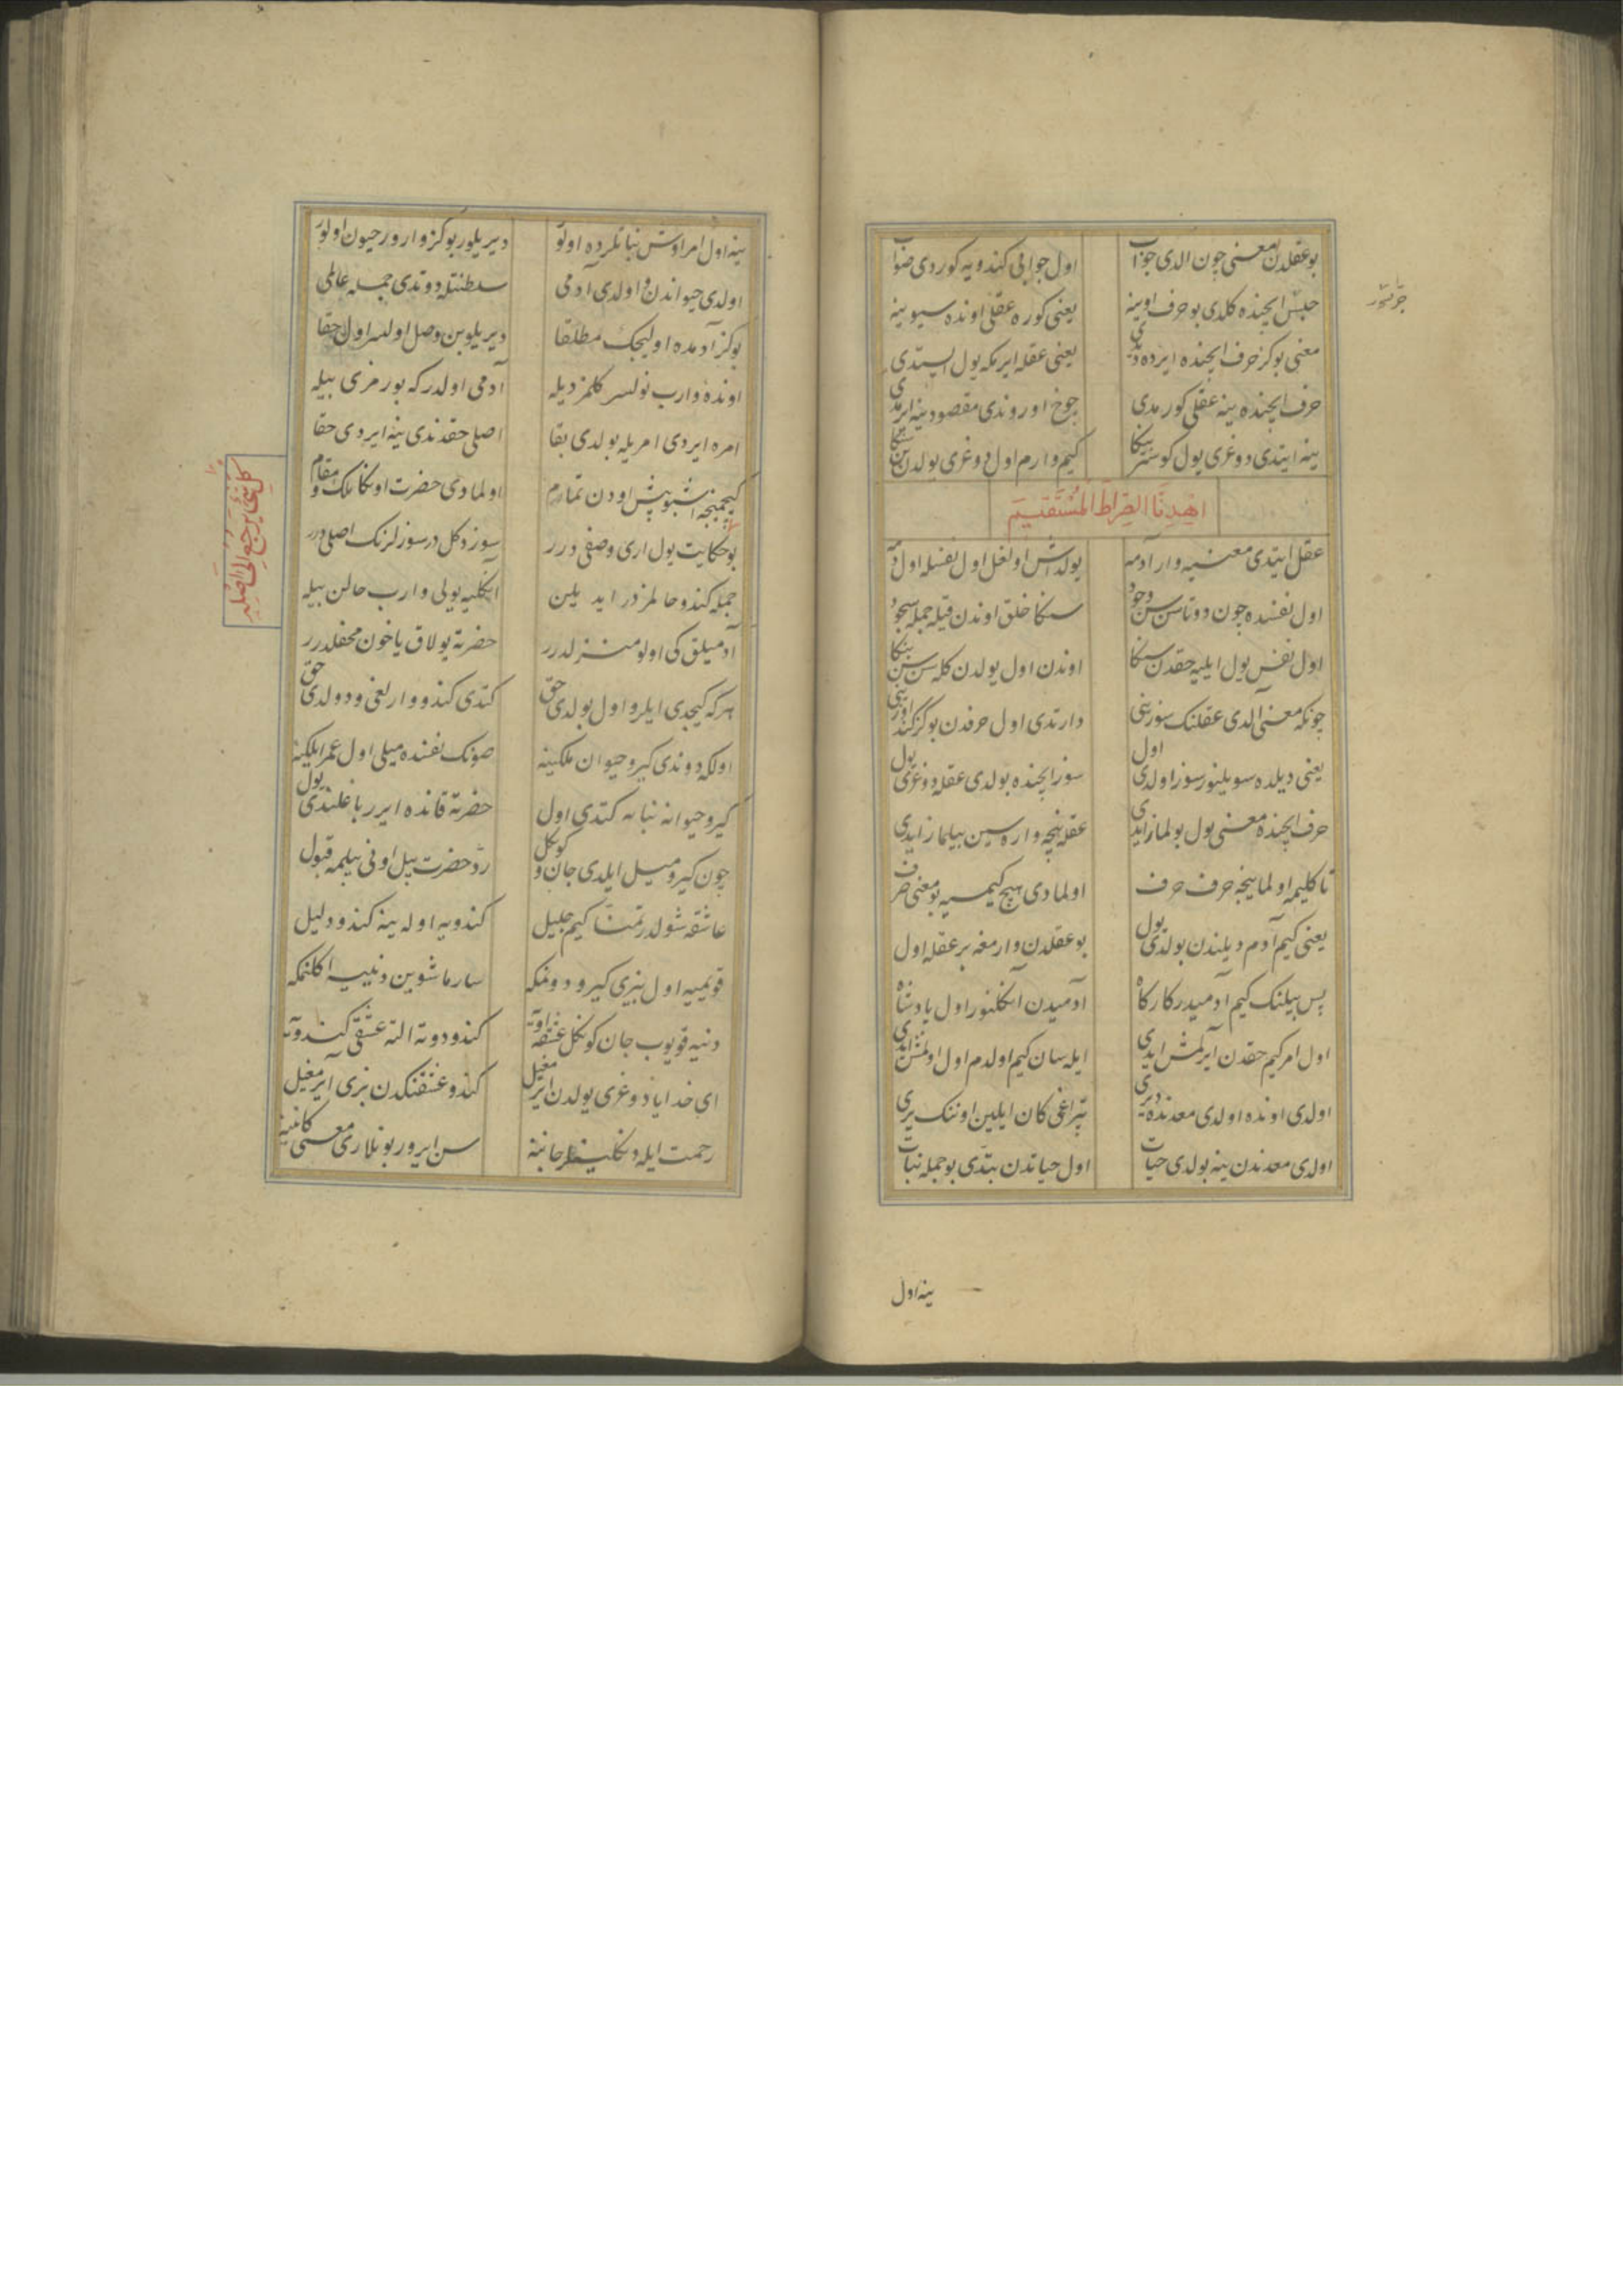 بو عقلدن معنی چون الدی جواب
اول جوابی کندویه کوردی صواب
حبس ایچنده کلدی بو حرف اوینه
یعنی کوره عقلی اونده سیوینه
معنی بو کز حرف ایچنده ایرده دی
یعنی عقله ایرمکه یول ایستدی
حرف ایچنده ینه عقلی کورمدی
چوخ اوروندی مقصودینه ایرمدی
ینه ایتدی دوغری یول کوستر بنکا
کیم وارم اول دوغری یولدن سنکا
اهدنا الصراط المستقیم
عقل ایتدی معنیه وار آدمه
یولداش اولغل اول نفسله اول دمه
اول نفسده چون دوتاسن سن وجود
سنکا خلق اوندن قیله جمله سجود
اول نفس یول ایلیه حقدن سنکا
اوندن اول یولدن کله سن سن بنکا
چونکه معنی آلدی عقلنک سوزینی
دارتدی اول حرفدن بو کز کندوزینی
یعنی دیلده سویلنور سوز اولدی اول
سوز ایچنده بولدی عقله دوغری یول
حرف ایچنده معنی یول بولماز ایدی
عقله نیچه واره سین بیلماز ایدی
تا کلیم اولماینجه حرف حرف
اولمادی هیچ کیمسیه بو معنی حرف
یعنی کیم آدم دیلندن بولدی یول
بو عقلدن وارمغه بر عقله اول
پس بیلنک کیم آدمیدر کارکاه
آدمیدن آنکلنور اول پادشاه
اول امر کیم حقدن آیرلمش ایدی
ایله سان کیم اولدم اول اولمش ایدی
اولدی اونده اولدی معدنده دیری
تپراغی کان ایلین اوننک یری
اولدی معدندن ینه بولدی حیات
اول حیاتدن بتدی بو جمله نبات
ینه اول
ینه اول امر اوش نباتلرده اولور
دیریلور بو کز وارور حیون اولور
اولدی حیواندن و اولدی آدمی
سلطنتله دوتدی جمله عالمی
بو کز آدمده اولیجک مطلقا
دیریلوبن وصل اولسر اول حقا
اونده وارب نولسر کلمز دیله
آدمی اولدر که بو رمزی بیله
امره ایردی امریله بولدی بقا
اصلی حقدندی ینه ایردی حقا
کیچمینجه اشبو بیش اودن تمام
اولمادی حضرت اونکا ملک و مقام
کل شیء یرجع الی اصله
بو حکایت یول اری وصفی درر
سوز دکل در سوزلرنک اصلی درر
جمله کندو حالمزدر اید یلین
آنکلیه یولی وارب حالن بیله
آدمیلق کی اولو منزلدرر
حضرته یولاق یاخون محفلدرر
هر که کیچدی ایلرو اول بولدی حق
کتدی کندو وارلغی و دولدی حق
اولکه دوندی کیرو حیوان ملکینه
صونک نفسنده میلی اول عمر ایلکینه
کیرو حیوانه نباته کتدی اول
حضرته قانده ایرر باغلندی یول
چون کیرو میل ایلدی جان و کونکل
رد حضرت بیل اونی بیلمه قبول
عاشقه شولدر تمنا کیم جلیل
کندویه اوله ینه کندو دلیل
قویمیه اول بیزی کیرو دونمکه
سارماشوبن دنییه اکلنمکه
دنیه قویوب جان کونکل عشقه اوته
کندو دوته النه عشقی کندوته
ای خدایا دوغری یولدن ایرمغیل
کندو عشقنکدن بزی آیرمغیل
رحمت ایله
سن ایرور بونلاری معنی کانینه